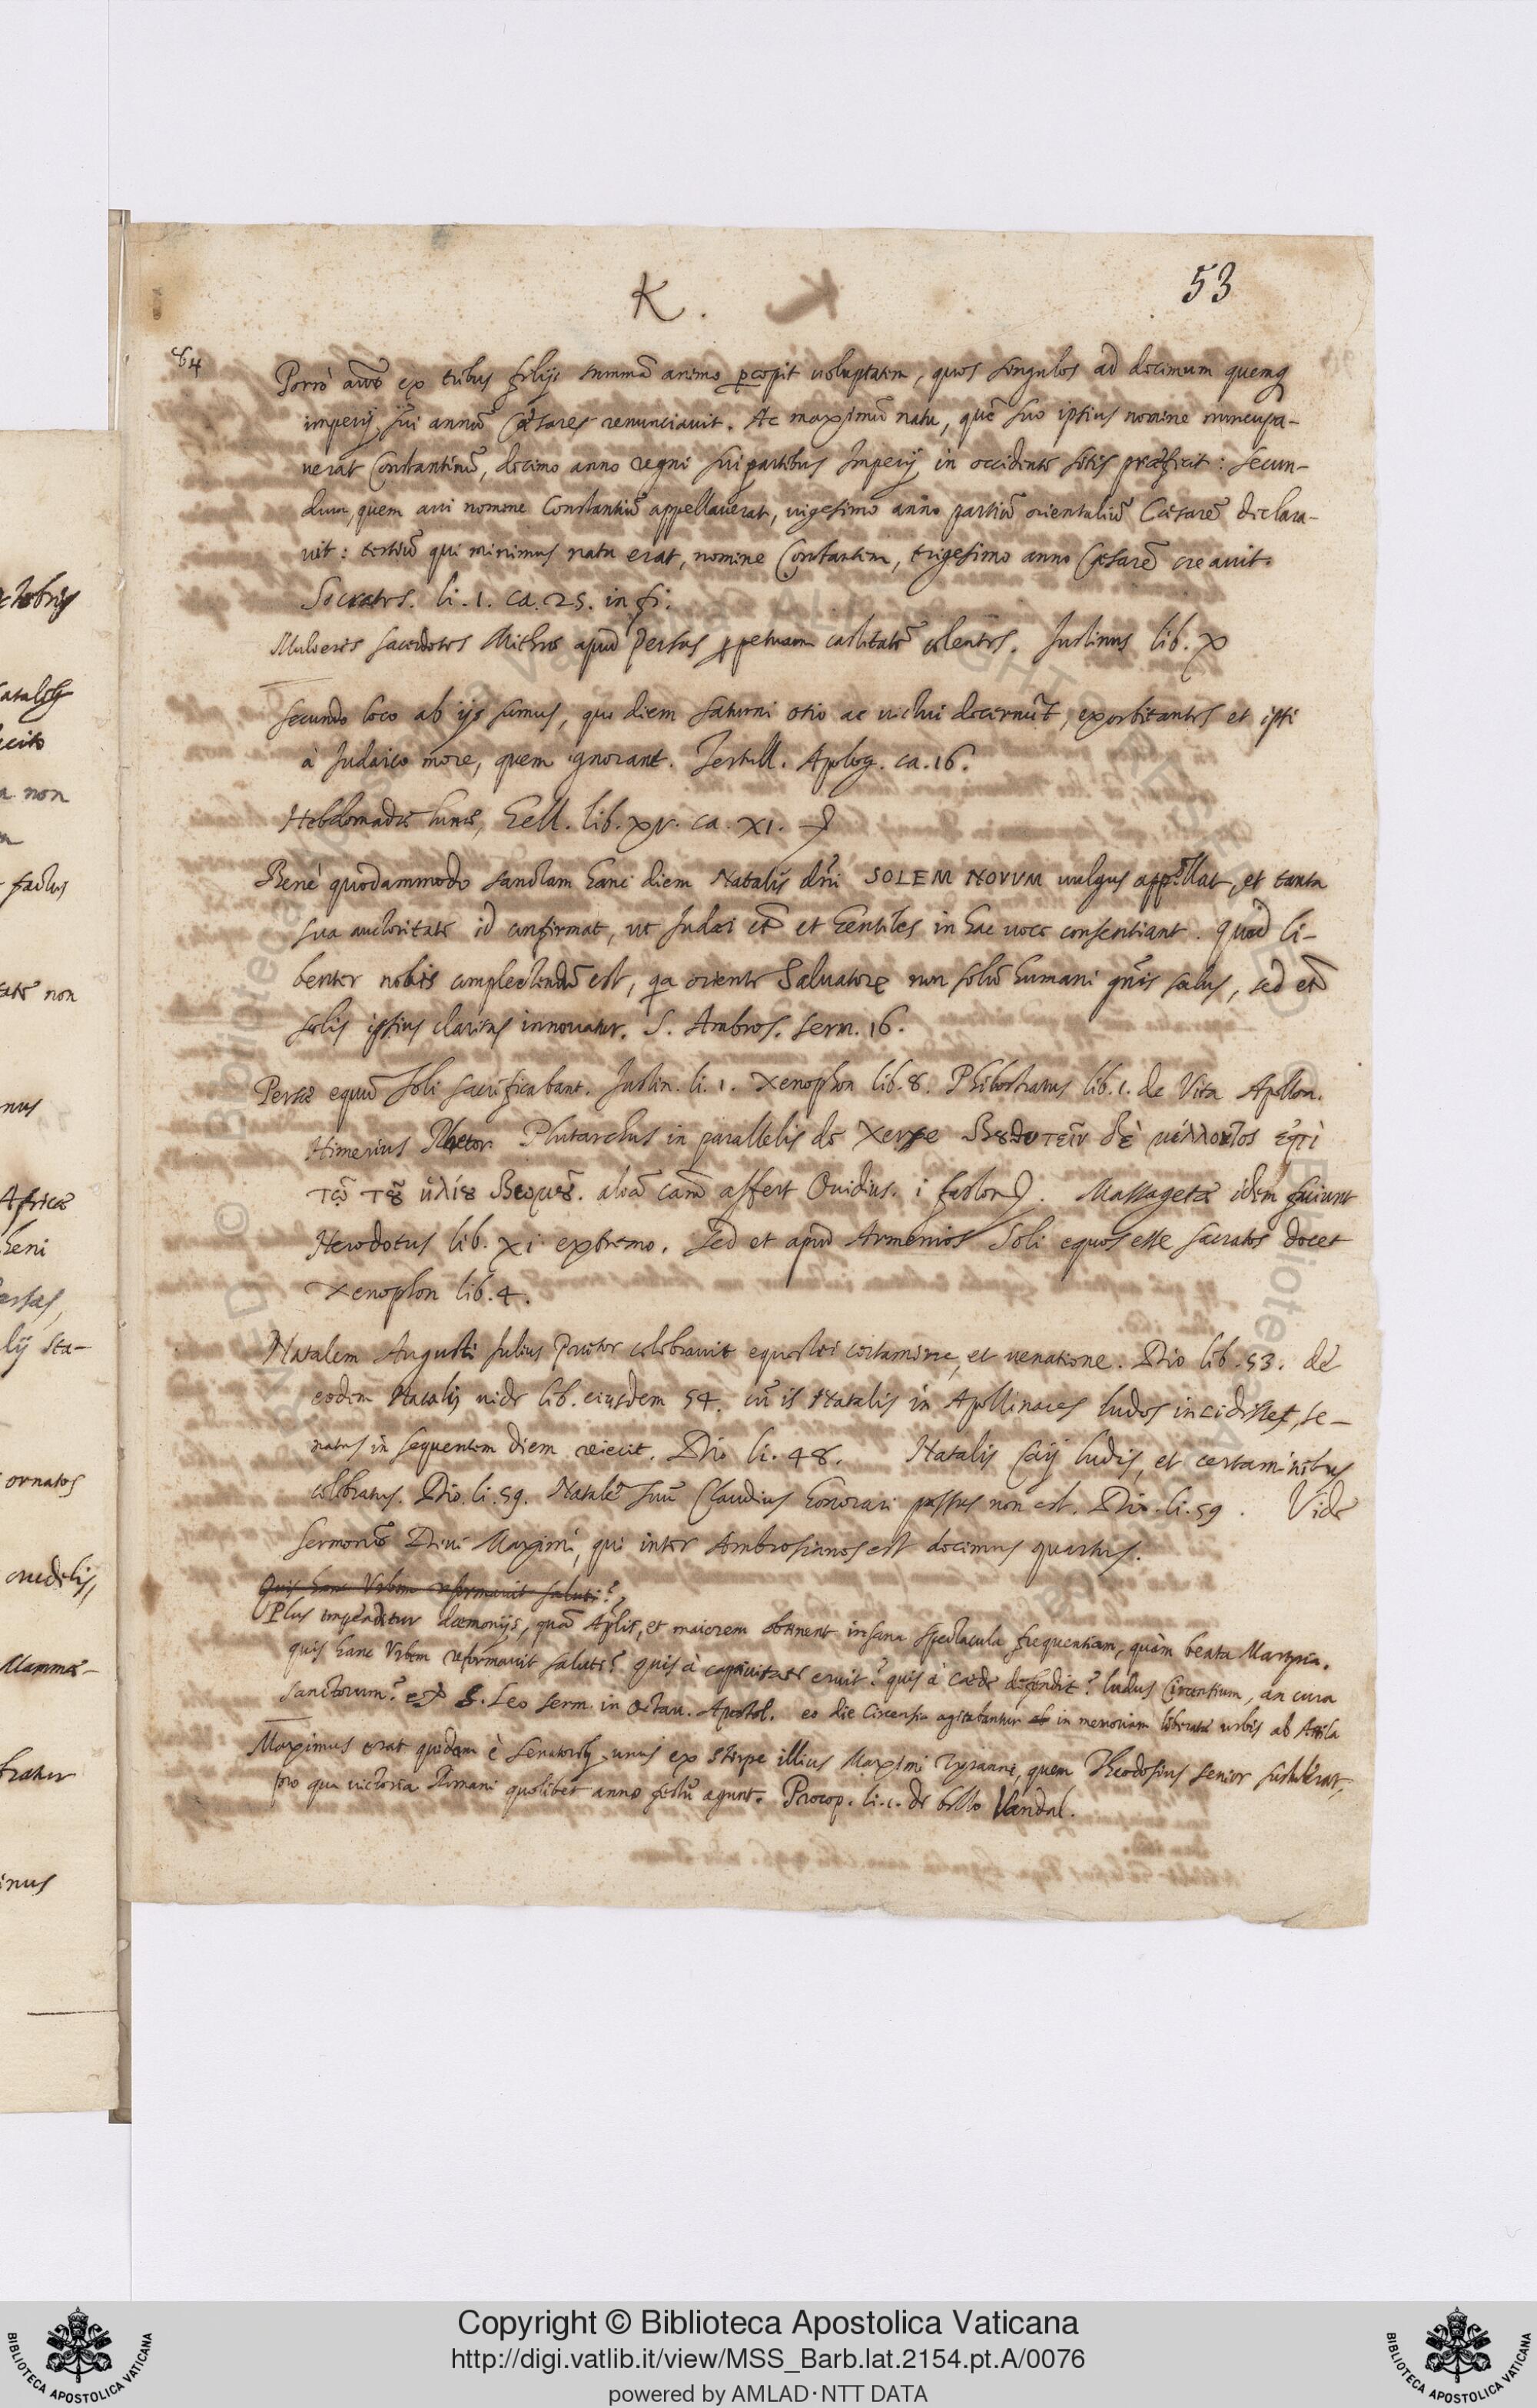 K.
53
64
Porrò aūt ex tribus filijs summã animo ꝑcepit uoluptatem, quos singulos ad decimum quemq
imperij sui annũ Cæsares renunciauit. Ac maximũ natu, quẽ suo ipsius nomine nuncupa-
uerat Constantinũ, decimo anno regni sui partibus Imperij in occidente sitis præficit: secun-
dum, quem aui nomine Constantiũ appellauerat, uigesimo anno partiũ orientaliũ Cæsarẽ declara-
uit: tertiũ qui minimus natu erat, nomine Constantem, trigesimo anno Cæsarẽ creauit.
Socrates. li. 1. ca. 25. in fi.
Mulieres sacerdotes Mithræ apud Persas ꝑpetuam castitatẽ colentes. Justinus lib. X
Secundo loco ab ijs sumus, qui diem Saturni otio ac uictui decernũt, exorbitantes et ipsi
à Judaico more, quem ignorant. Tertull. Apolog. ca. 16.
Hebdomadæ lunæ, Gell. lib. XV. ca. XI.
Bene quodammodo sanctam hanc diem Natalis dñi SOLEM NOVVM uulgus appellat, et tanta
sua auctoritate id confirmat, ut Judæi etiã et Gentiles in hac uoce consentiant. Quod li-
benter nobis amplectendũ est, qa oriente Saluatore non solũ humani gñis salus, sed etiã
solis ipsius claritas innouatur. S. Ambros. serm. 16.
Persæ equũ Soli sacrificabant. Justin. li. 1. Xenophon lib. 8. Philostratus lib. 1. de Vita Apollon.
Himerius Rhetor. Plutarchus in parallelis de Xerxe Βουθυτεῖν δὲ μέλλοντος ἐπὶ
τῷ τοῦ ἡλίου βωμῷ. aliã cauã affert Ouidius. i fastor. Massagetæ idem faciunt
Herodotus lib. XI extremo. Sed et apud Armenios Soli equos esse sacratos docet
Xenophon lib. 4.
Natalem Augusti Julius Prætor celebrauit equestri certamine, et uenatione. Dio lib. 53. de
eodem Natali uide lib. eiusdem 54. cũ is Natalis in Apollinares ludos incidisset, se-
natus in sequentem diem reiecit. Dio li. 48. Natalis Caij ludis, et certaminibus
celebratus. Dio. li. 59. Natalẽ suũ Claudius honorari passus non est. Dio. li. 59. Vide
sermonẽ Diui Maximi, qui inter Ambrosianos est decimus quartus.
Quis hanc Vrbem reformauit saluti?
Plus impenditur dæmonijs, quã Aplis, et maiorem obtinent insana spectacula frequentiam, quàm beata Martyria.
quis hanc Vrbem reformauit saluti? quis à captiuitate eruit? quis à cæde defendit? ludus Circensium, an cura
sanctorum? S. Leo serm. in Octau. Apostol. eo die Circensia agitabantur in memoriam liberatæ urbis ab Attila
Maximus erat quidam è Senatorib unus ex stirpe illius Maximi Tyranni, quem Theodosius senior sustulerat,
pro qua uictoria Romani quolibet anno festũ agunt. Procop. li. 1. de bello Vandal.
Copyright © Biblioteca Apostolica Vaticana
http://digi.vatlib.it/view/MSS_Barb.lat.2154.pt.A/0076
powered by AMLAD·NTT DATA